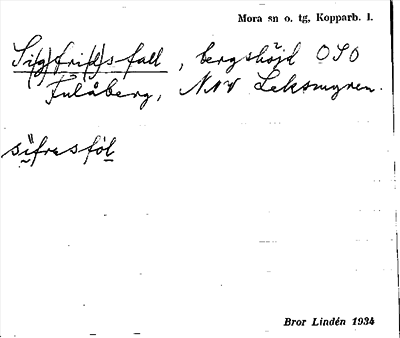 Mora sn o. tg, Kopparb. l.
Si(g)fri(d)sfall, bergshöjd OSO
Fulåberg, NNV Leksmyren.
sifresföl
Bror Lindén 1934